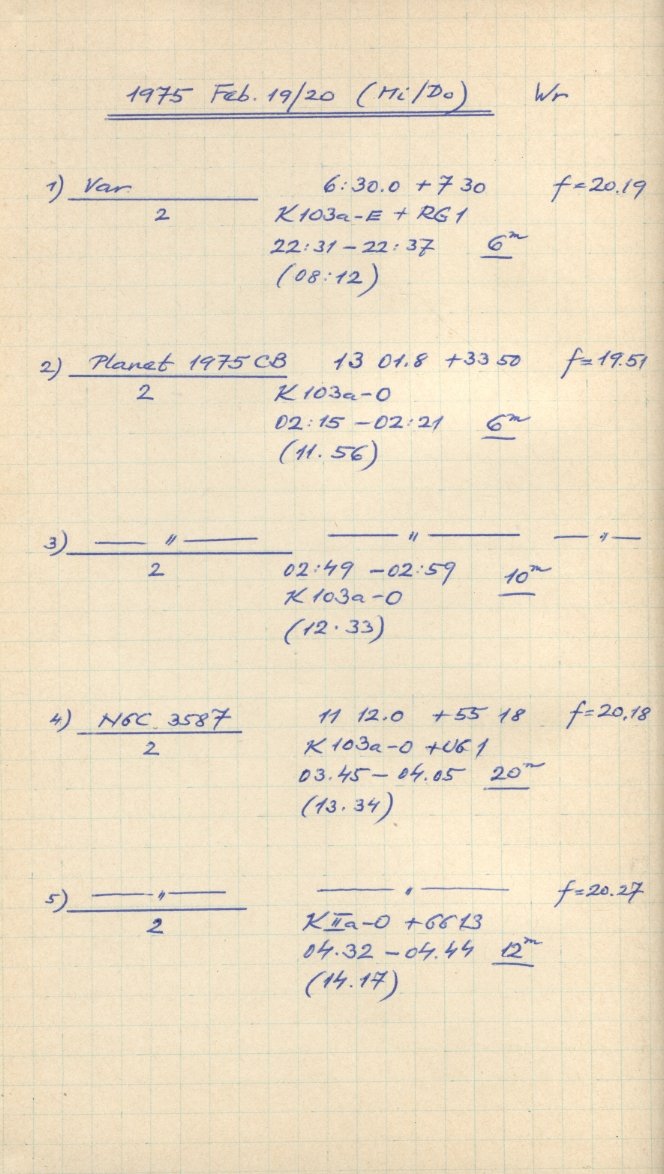 1975 Feb. 19/20 (Mi/Do) Wr
1) Var. 6:30.0 +7 30 f=20.19
2 K103a-E + RG1
22:31-22:37 6m
(08:12)
2) Planet 1975 CB 13 01.8 +33 50 f=19.51
2 K103a-O
02:15-02:21 6m
(11.56)
3) — " — — " — — " —
2 02:49-02:59 10m
K103a-O
(12.33)
4) NGC 3587 11 12.0 +55 18 f=20,18
2 K103a-O +UG1
03.45-04.05 20m
(13.34)
5) — " — — " — f=20.27
2 KIIa-O +GG13
04.32-04.44 12m
(14.17)